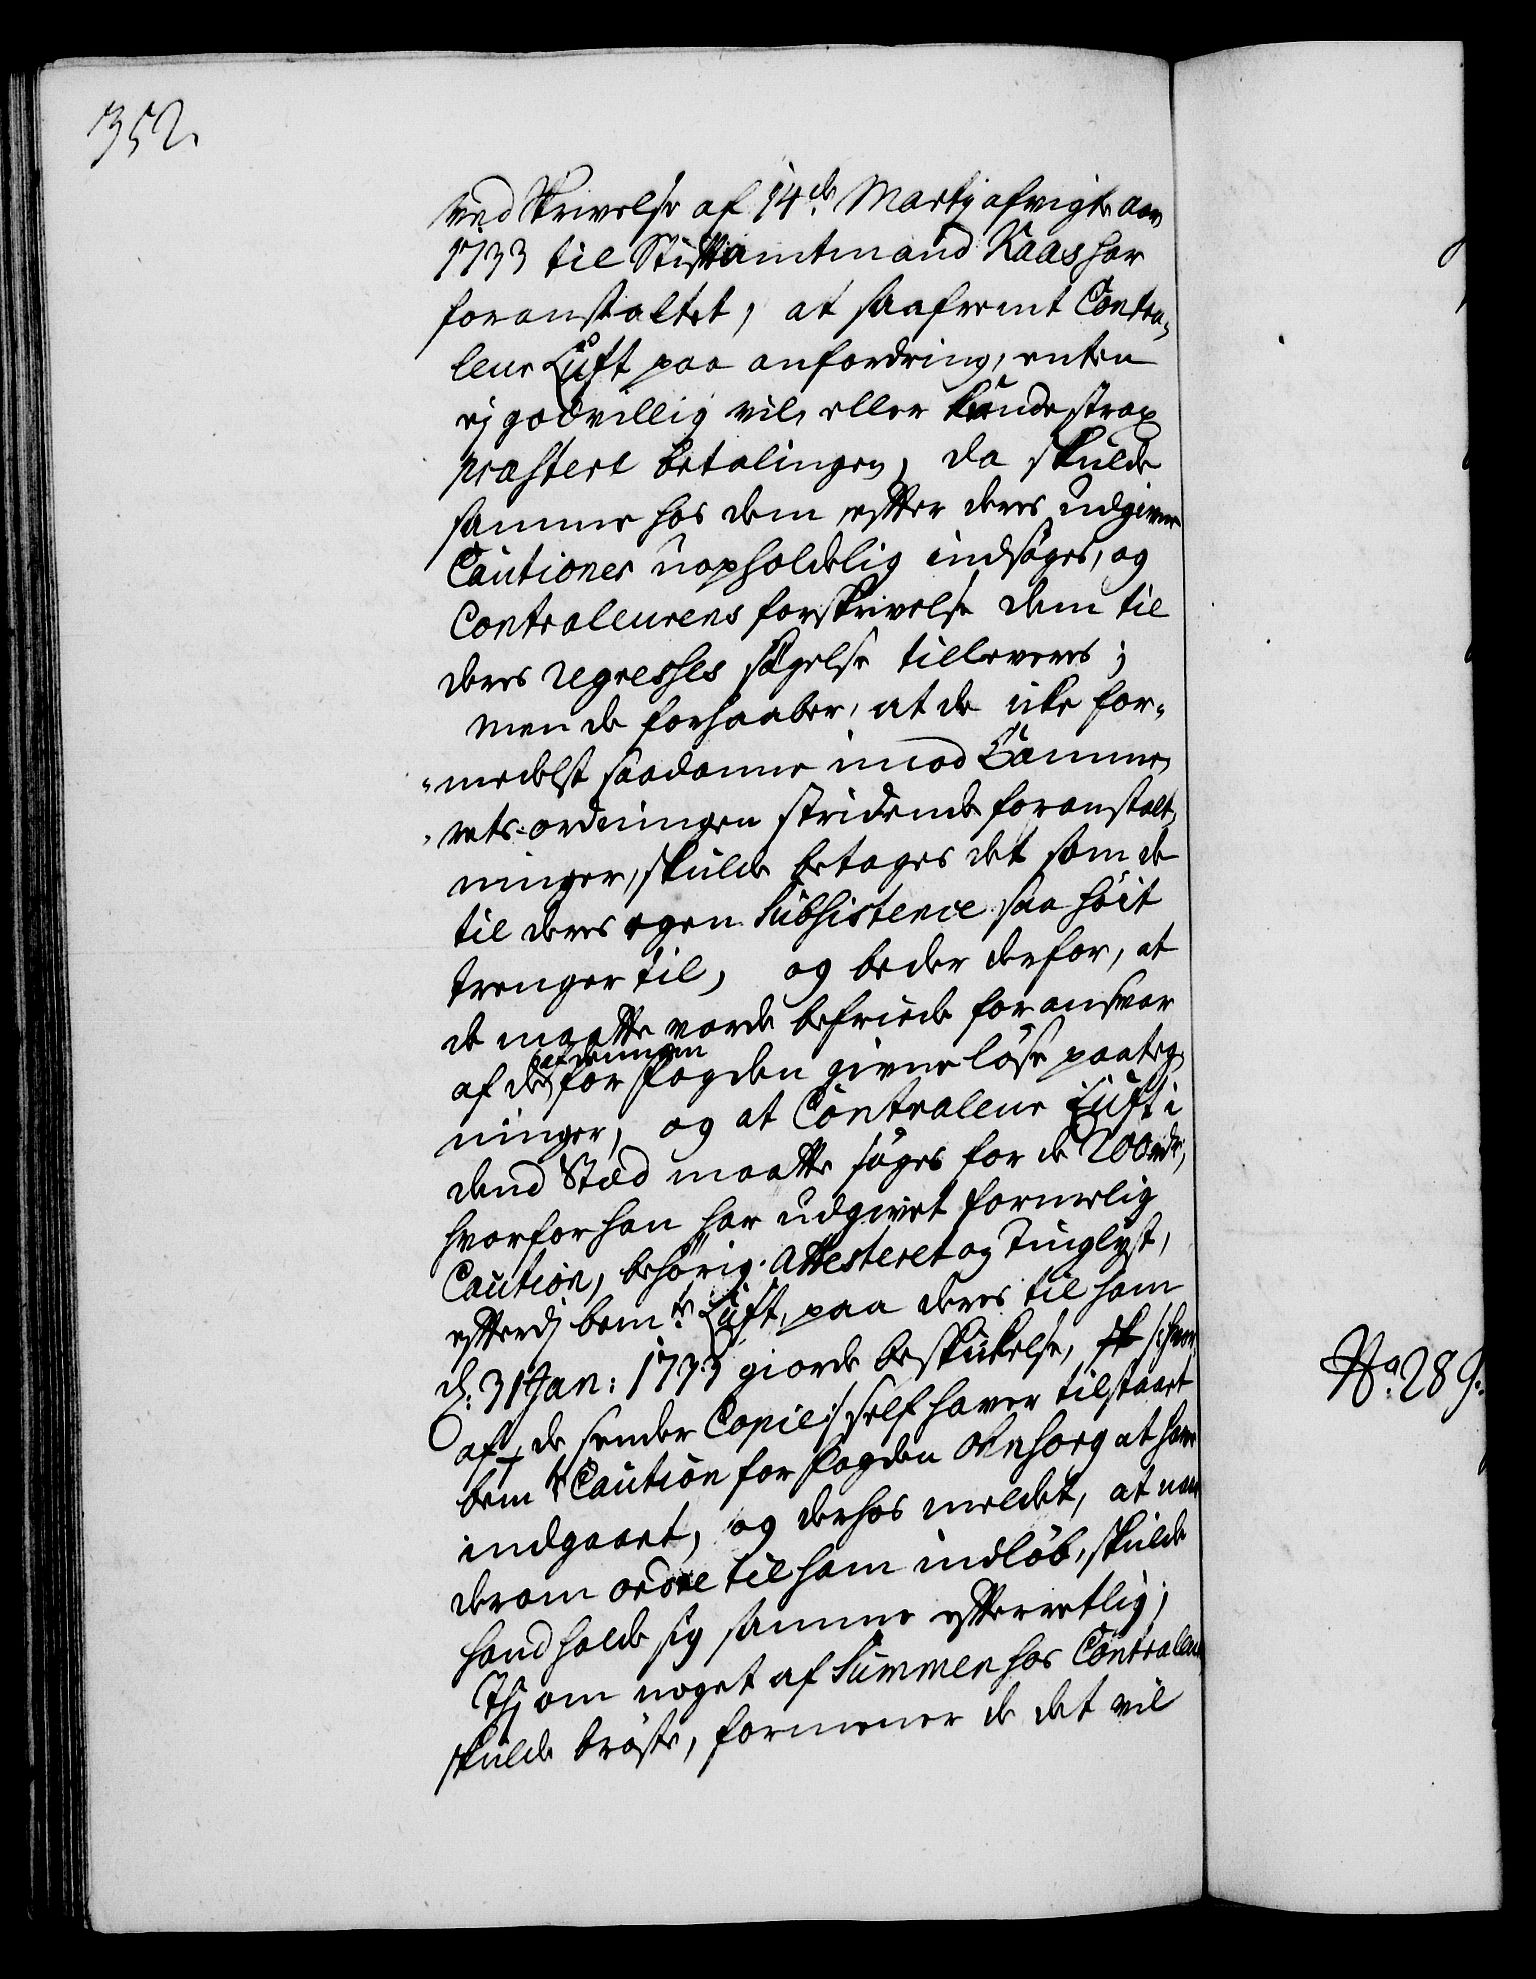 352.
ved Skrivelse af 14de Martij afvigte Aar
1733 til Stiftamtmand Kaas har
foranstaltet, at saafremt Contra-
leur Luft paa anfordring, enten
ej godvillig vil, eller kunde strax
præstere betalingen, da skulde
samme hos dem efter deres udgivne
Cautioner uopholdelig indsøges, og
Contraleurens forskrivelse dem til
deres regresses søgelse tilleveres;
men de forhaaber, at de icke for-
medelst saadanne imod Camme-
rets-ordningen stridende foranstalt-
ninger, skulde betages det som de
til deres egen Subsistence saa høit
trenger til, og beder derfor, at
de maatte vorde befriede for ansvar
af de for Fogden givne løse paateg-
ninger, og at Contraleur Luft i
dend Sted maatte søges for de 200 rdr,
hvorfor han har udgivet formelig
Caution, behørig Attesteret og Tinglyst,
efterdj bemte Luft, paa deres til ham
d. 31 Jan: 1733 giorde beskickelse, /: hvor
af de sender Copie :/ self haver tilstaaet
bemte Caution for Fogden Ohnsorg at have
indgaaet, og derhos meldet, at naar
derom ordre til ham indløb, skulde
hand holde sig samme efterretlig;
Thj om noget af Summen hos Contraleur
skulde brøste, formener de det vil
No. 289.